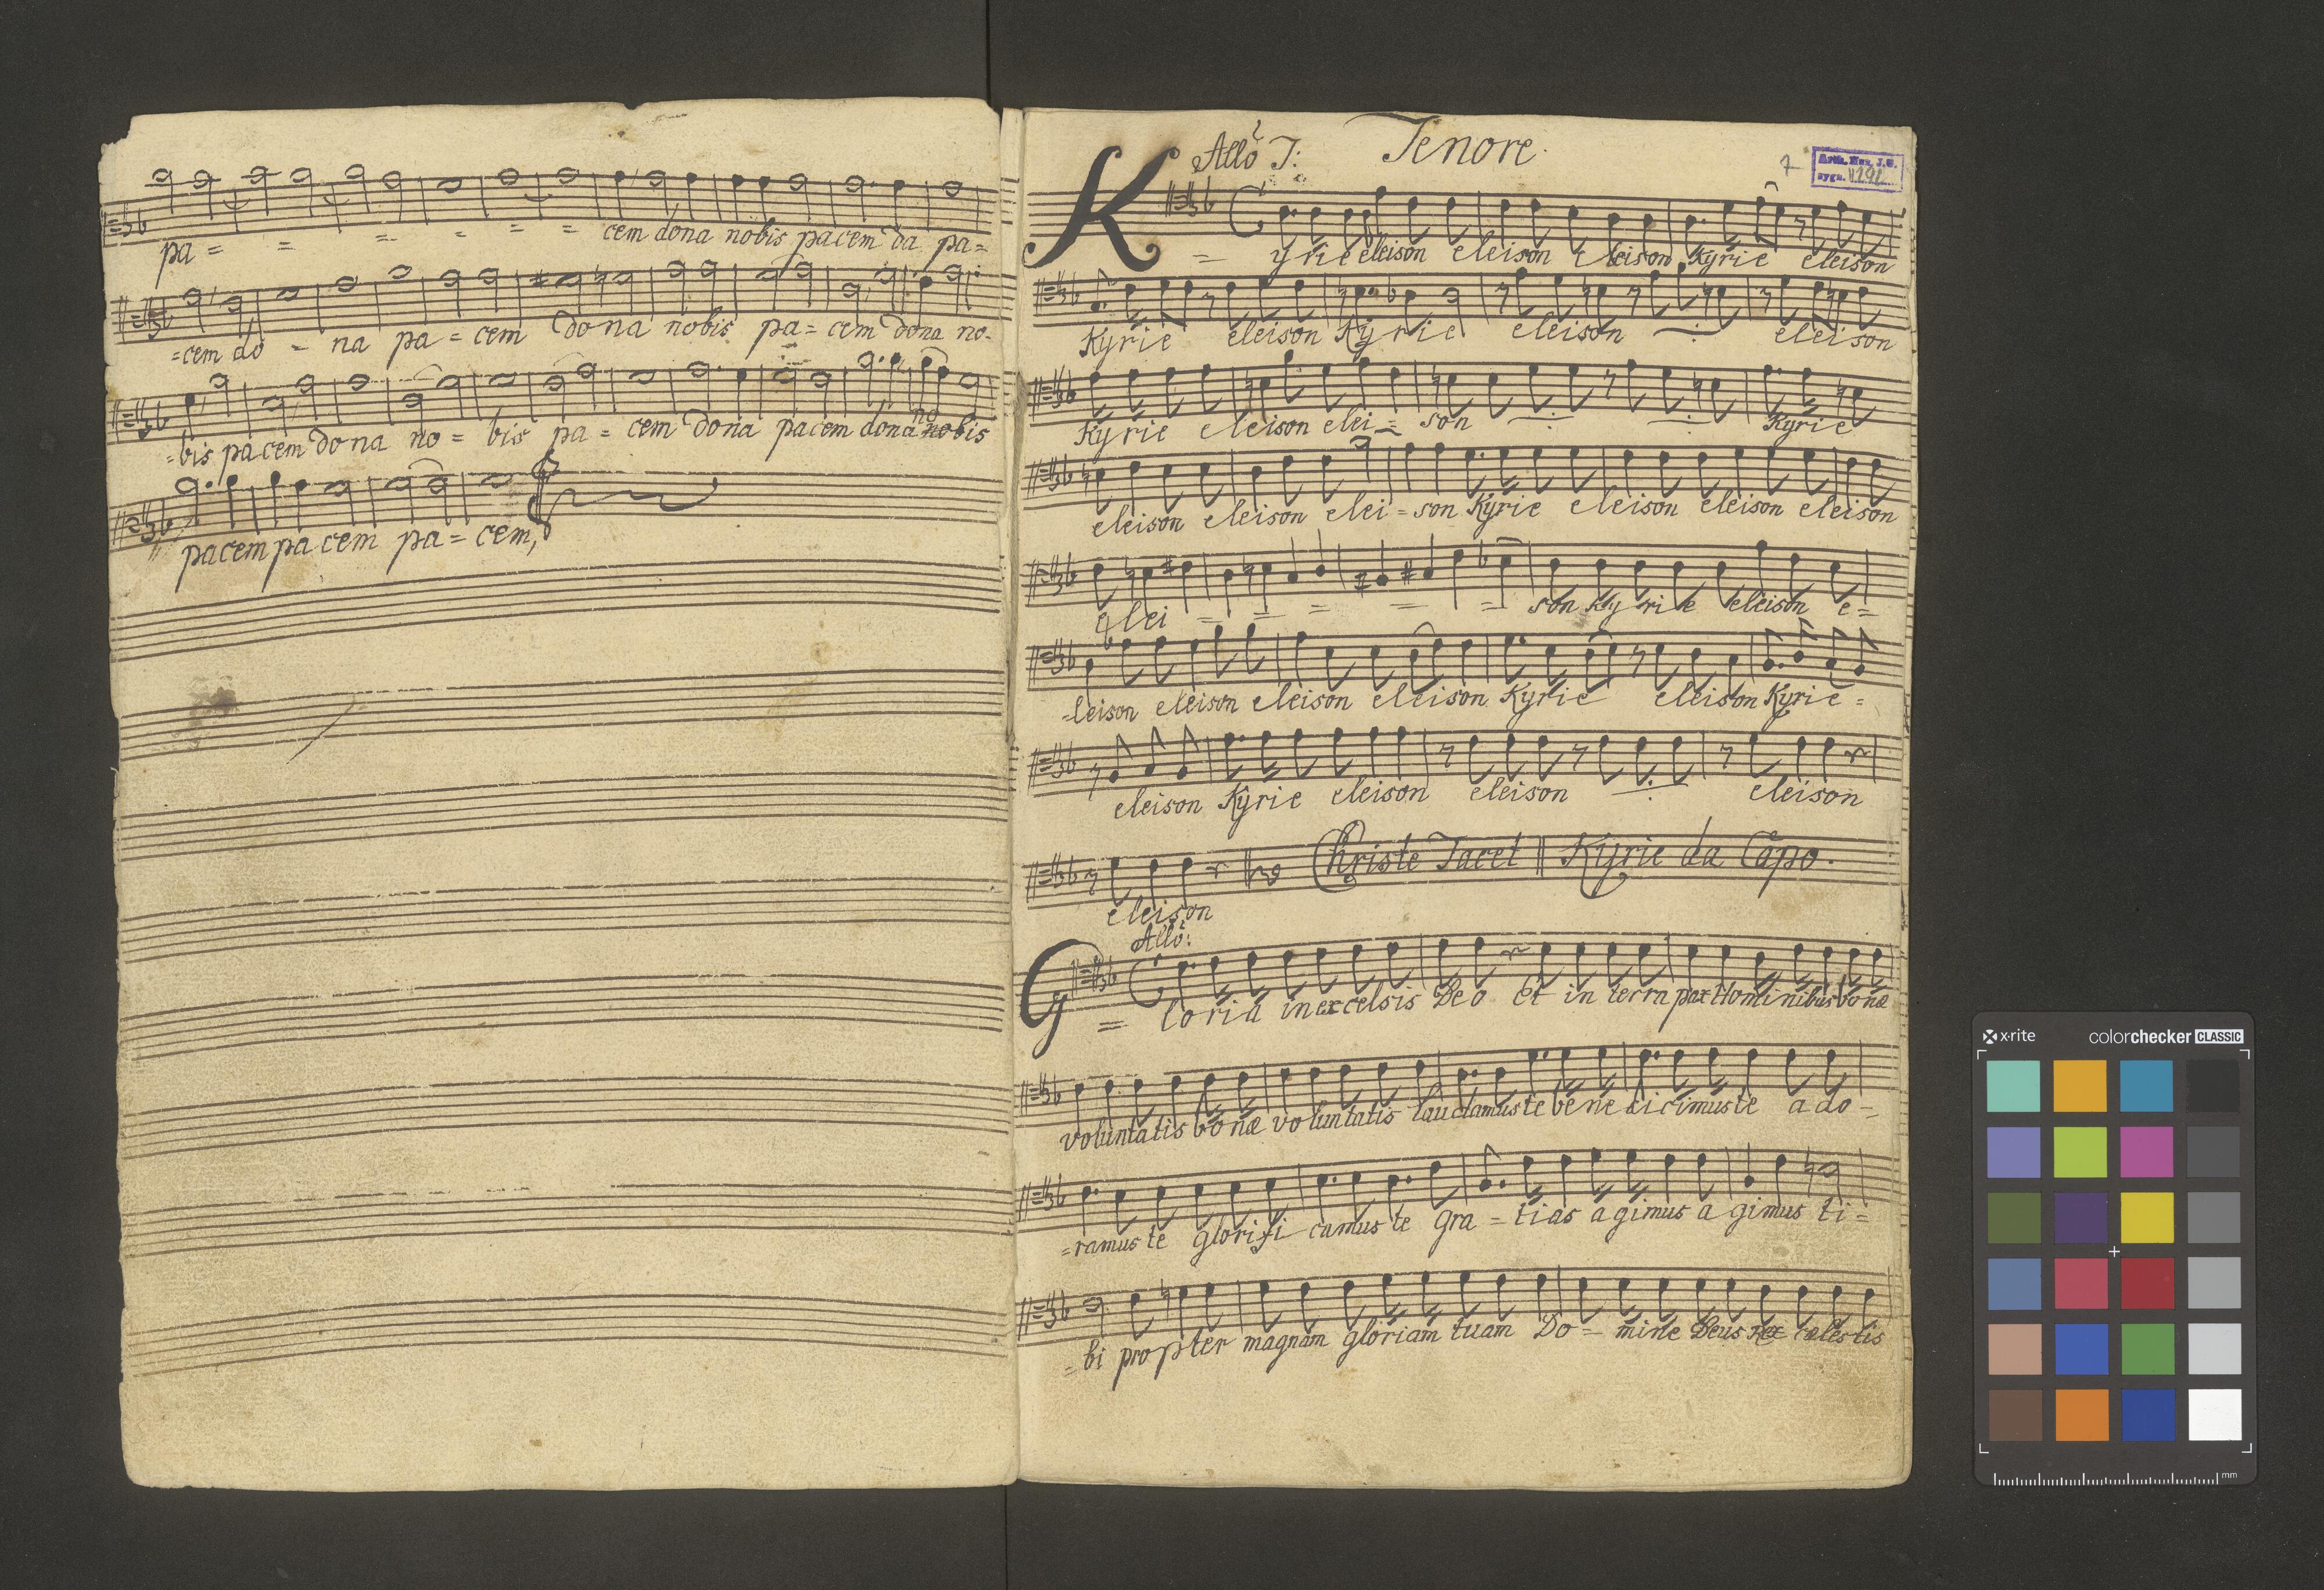 pa = = = = = = cem dona nobis pacem da pa=
=cem do - na pa = cem dona nobis pa = cem dona no-
=bis pacem dona no = bis pa = cem dona pacem dona no nobis
pacem pacem pa = cem,
Allo I: Tenore.
7
Arch. Muz. J.G.
sygn.
K = yrie eleison eleison eleison Kyrie eleison
Kyrie eleison Kyrie eleison eleison
Kyrie eleison elei = son Kyrie
eleison eleison elei = son Kyrie eleison eleison eleison
elei = = = = = son Kyrie eleison e=
-leison eleison eleison eleison Kyrie eleison Kyrie =
eleison Kyrie eleison eleison eleison
Christe Tacet || Kyrie da Capo.
eleison
Allo:
G = loria in excelsis Deo Et in terra pax Hominibus bonæ
voluntatis bonæ voluntatis laudamus te bene dicimus te ado=
=ramus te glorifi camus te Gra = tias agimus agimus ti=
=bi propter magnam gloriam tuam Do = mine Deus rex cælestis
x·rite colorchecker CLASSIC
mm